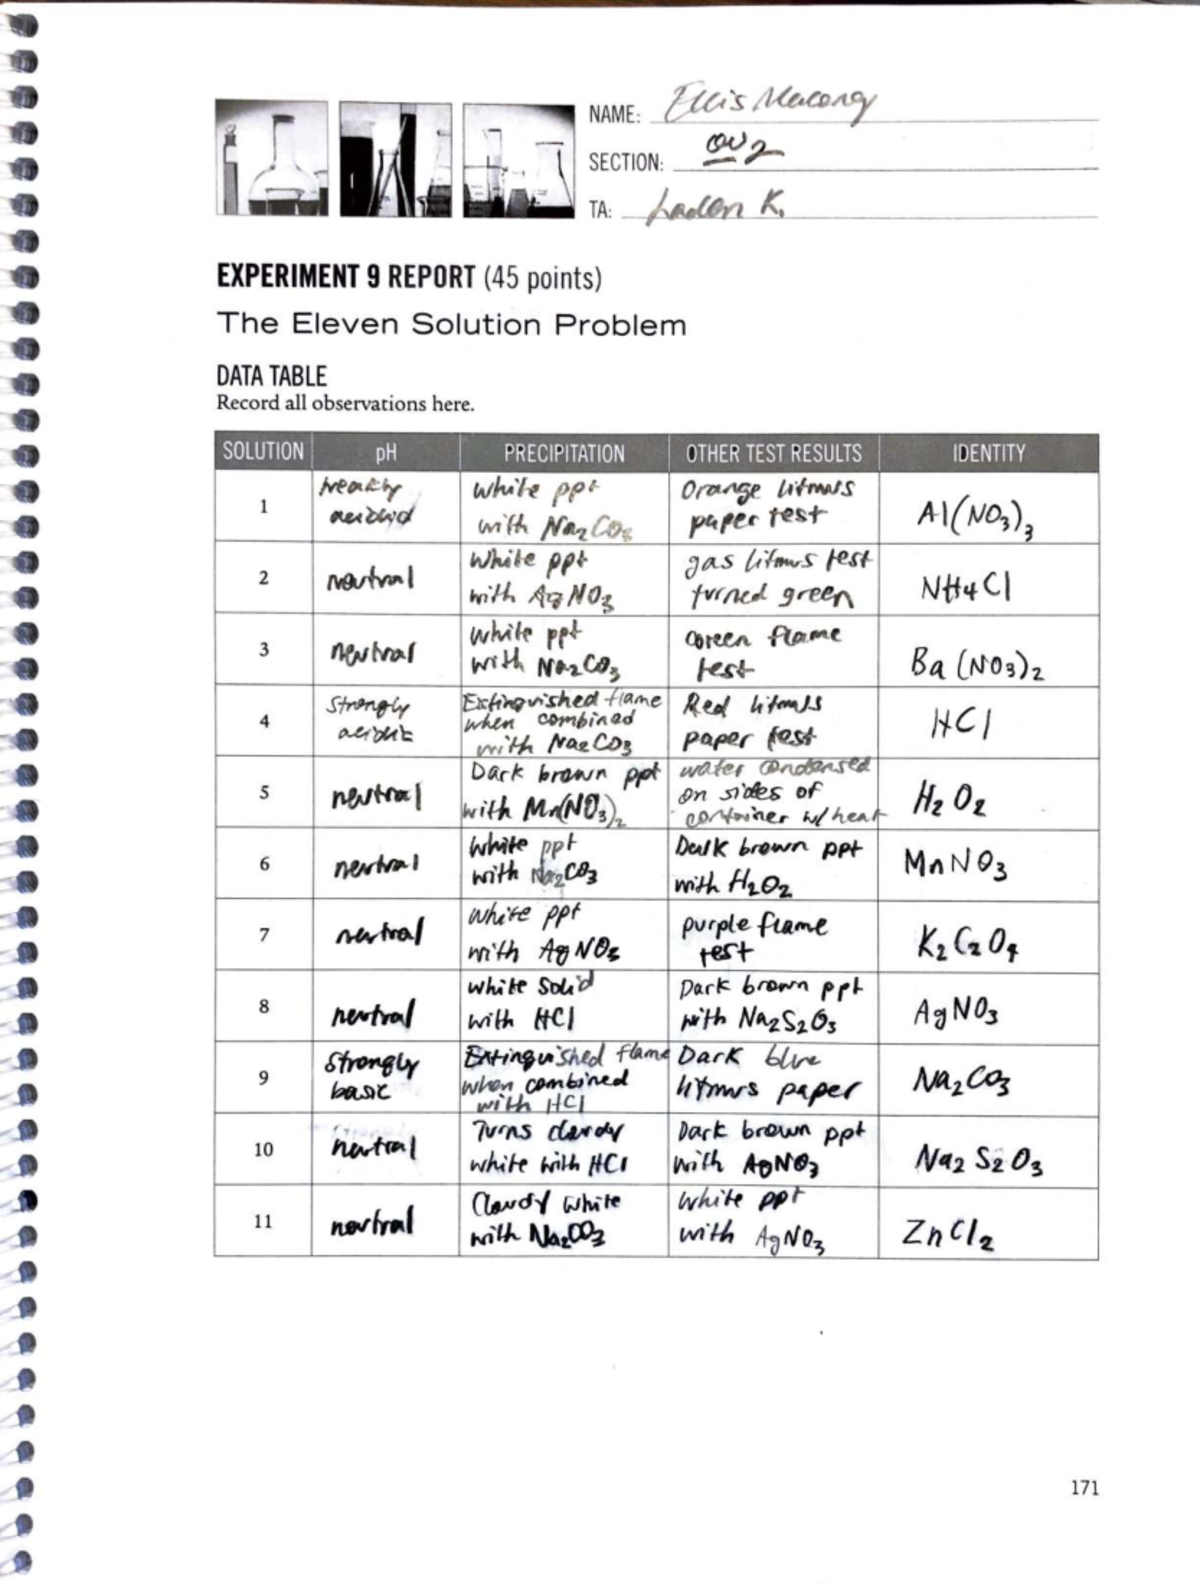 NAME: Ellis Maloney
SECTION: 002
TA: Laden K.
EXPERIMENT 9 REPORT (45 points)
The Eleven Solution Problem
DATA TABLE
Record all observations here.
SOLUTION pH PRECIPITATION OTHER TEST RESULTS IDENTITY
1
weakly
acidic
white ppt
with Na2CO3
Orange litmus
paper test
Al(NO3)3
2
neutral
White ppt
with AgNO3
gas litmus test
turned green
NH4Cl
3
neutral
white ppt
with Na2CO3
Green flame
test
Ba (NO3)2
4
Strongly
acidic
Extinguished flame
when combined
with Na2CO3
Red litmus
paper test
HCl
5
neutral
Dark brown ppt
with Mn(NO3)2
water condensed
on sides of
container w/ heat
H2O2
6
neutral
white ppt
with Na2CO3
Dark brown ppt
with H2O2
MnNO3
7
neutral
white ppt
with AgNO3
purple flame
test
K2C2O4
8
neutral
white solid
with HCl
Dark brown ppt
with Na2S2O3
AgNO3
9
Strongly
basic
Extinguished flame
when combined
with HCl
Dark blue
litmus paper
Na2CO3
10
neutral
Turns cloudy
white with HCl
Dark brown ppt
with AgNO3
Na2S2O3
11
neutral
Cloudy white
with Na2CO3
white ppt
with AgNO3
ZnCl2
171